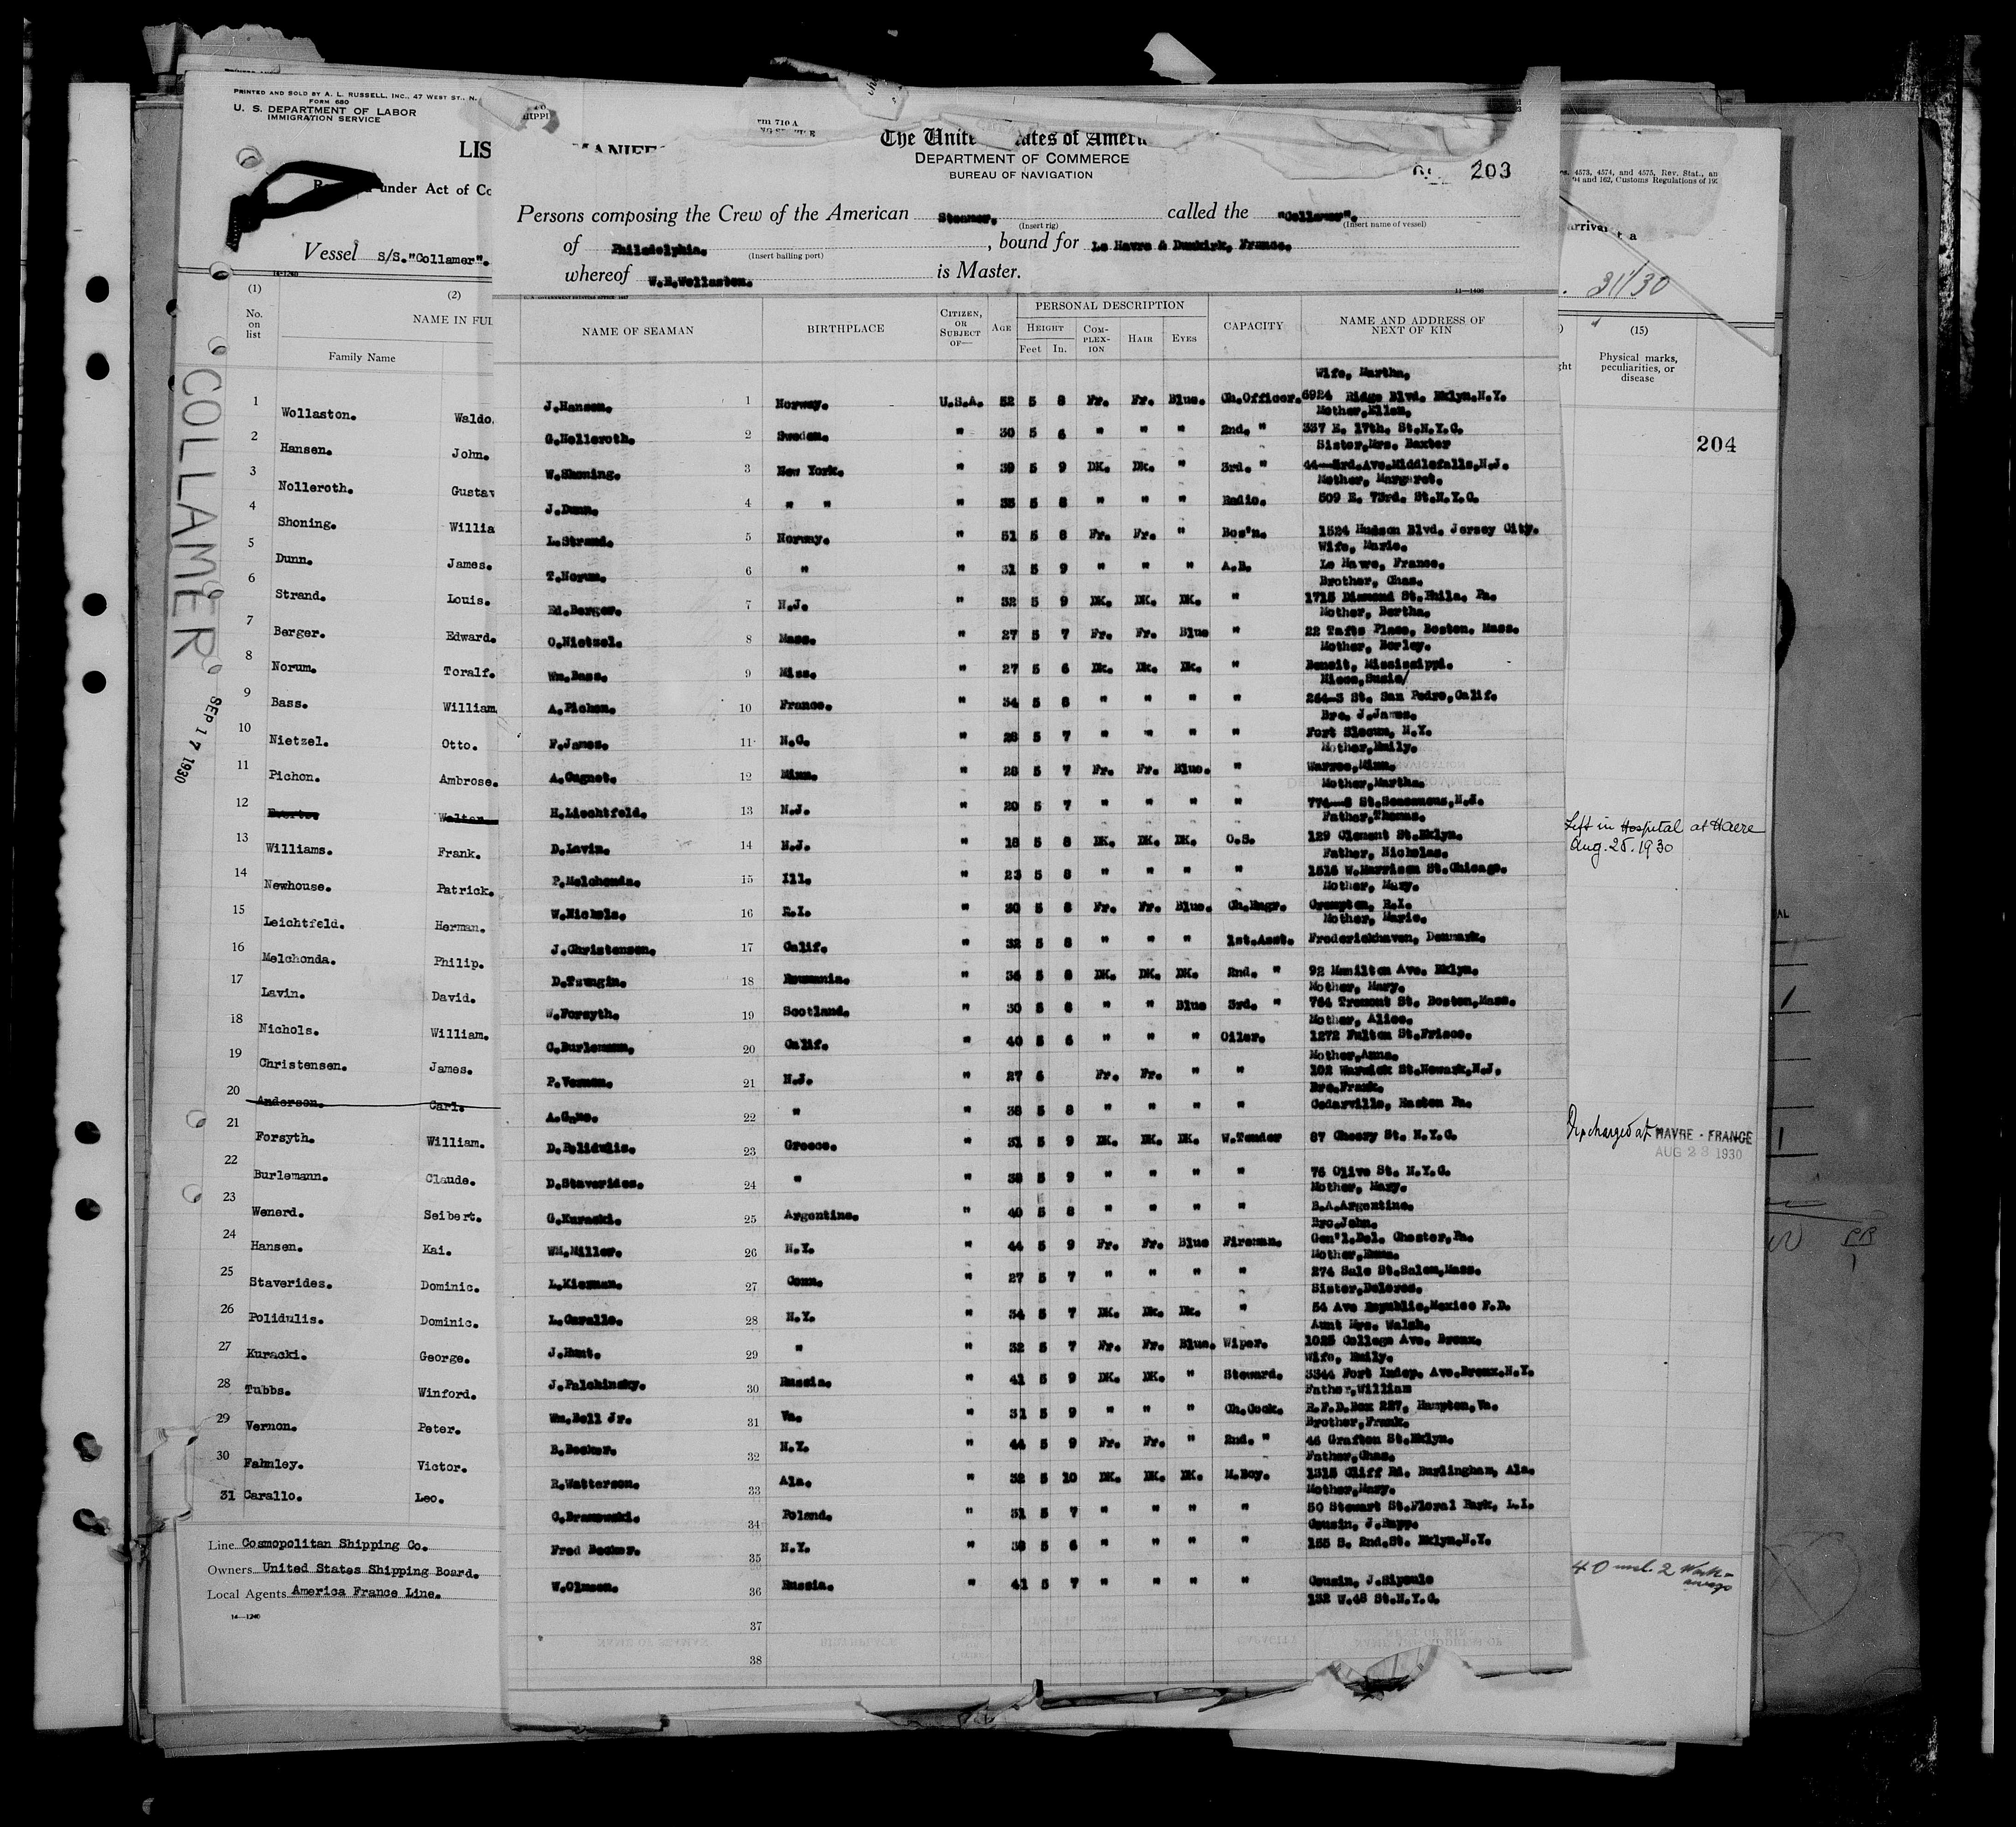 PRINTED AND SOLD BY A. L. RUSSELL, INC., 47 WEST ST., N.
FORM 680
U. S. DEPARTMENT OF LABOR
IMMIGRATION SERVICE
LIS
under Act of Co
Vessel S/S."Collamer".
(1) (2)
No. on list
NAME IN FUL
Family Name
1 Wollaston. Waldo.
2 Hansen. John.
3 Nolleroth. Gustav
4 Shoning. Willia
5 Dunn. James.
6 Strand. Louis.
7 Berger. Edward.
8 Norum. Toralf.
9 Bass. William.
10 Nietzel. Otto.
11 Pichon. Ambrose.
12 Walter
13 Williams. Frank.
14 Newhouse. Patrick.
15 Leichtfeld. Herman.
16 Melchonda. Philip.
17 Lavin. David.
18 Nichols. William.
19 Christensen. James.
20 Anderson. Carl.
21 Forsyth. William.
22 Burlemann. Claude.
23 Wenerd. Seibert.
24 Hansen. Kai.
25 Staverides. Dominic.
26 Polidulis. Dominic.
27 Kuracki. George.
28 Tubbs. Winford.
29 Vernon. Peter.
30 Fahnley. Victor.
31 Carallo. Leo.
Line Cosmopolitan Shipping Co.
Owners United States Shipping Board.
Local Agents America France Line.
14—1240
COLLAMER
SEP 17 1930
The United States of Ameri
DEPARTMENT OF COMMERCE
BUREAU OF NAVIGATION
203
Persons composing the Crew of the American Steamer, called the "Collamer".
(Insert rig) (Insert name of vessel)
of Philadelphia. , bound for Le Havre & Dunkirk, France.
(Insert hailing port)
whereof W.H.Wollaston. is Master.
NAME OF SEAMAN BIRTHPLACE CITIZEN, OR SUBJECT OF— AGE PERSONAL DESCRIPTION CAPACITY NAME AND ADDRESS OF NEXT OF KIN
HEIGHT COM-PLEX-ION HAIR EYES
Feet In.
Wife, Martha,
J.Hansen. 1 Norway. U.S.A. 52 5 8 Fr. Fr. Blue. Ch.Officer. 6924 Ridge Blvd. Bklyn.N.Y.
Mother,Ellen.
G.Nolleroth. 2 Sweden. " 30 5 6 " " " 2nd. " 337 E. 17th. St.N.Y.C.
Sister,Mrs. Baxter
W.Shoning. 3 New York. " 39 5 9 DK. Dk. " 3rd. " 44—3rd.Ave.Middlefalls,N.J.
Mother, Margaret.
J.Dunn. 4 " " " 35 5 8 " " " Radio. 509 E. 73rd. St.N.Y.C.
L.Strand. 5 Norway. " 51 5 8 Fr. Fr. " Bos'n. 1524 Hudson Blvd. Jersey City.
Wife, Marie.
T.Norum. 6 " " 31 5 9 " " " A.B. Le Havre, France.
Brother, Chas.
Ed.Berger. 7 N.J. " 32 5 9 DK. DK. DK. " 1715 Diamond St.Phila. Pa.
Mother, Bertha.
O.Nietzel. 8 Mass. " 27 5 7 Fr. Fr. Blue " 22 Tafts Place, Boston, Mass.
Mother, Berley.
Wm.Bass. 9 Miss. " 27 5 6 Dk. Dk. Dk. " Benoit, Mississippi.
Niece,Susie/
A.Pichon. 10 France. " 34 5 8 " " " " 264—3 St. San Pedro,Calif.
Bro. J.James.
F.James. 11 N.C. " 28 5 7 " " " " Fort Slocum, N.Y.
Mother,Emily.
A.Cugnet. 12 Minn. " 28 5 7 Fr. Fr. Blue. " Minn.
Mother,Martha.
H.Liechtfeld. 13 N.J. " 20 5 7 " " " " 774—8 St.Secaucus,N.J.
Father,Thomas.
D.Lavin. 14 N.J. " 18 5 8 DK. DK. DK. O.S. 129 Clement St.Bklyn.
Father, Nicholas.
P.Melchonda. 15 Ill. " 23 5 8 " " " " 1516 W.Harrison St.Chicago.
Mother, Mary.
W.Nichols. 16 R.I. " 30 5 8 Fr. Fr. Blue. Ch.Engr. Crompton, R.I.
Mother, Marie.
J.Christensen. 17 Calif. " 32 5 8 " " " 1st.Asst. Frederickhaven, Denmark.
D.Tsungin. 18 Roumania. " 36 5 8 DK. DK. DK. 2nd. " 92 Hamilton Ave. Bklyn.
Mother, Mary.
W.Forsyth. 19 Scotland. " 30 5 8 " " Blue 3rd. " 764 Tremont St. Boston,Mass.
Mother, Alice.
C.Burlemann. 20 Calif. " 40 5 6 " " " Oiler. 1272 Fulton St.Frisco.
Mother,Anna.
P.Vernon. 21 N.J. " 27 6 Fr. Fr. " " 102 Warwick St.Newark,N.J.
Bro.Frank.
A.Gano. 22 " " 38 5 8 " " " " Cedarville, Easton Pa.
D.Polidulis. 23 Greece. " 31 5 9 DK. DK. DK. W.Tender 87 Cherry St. N.Y.C.
D.Staverides. 24 " " 38 5 9 " " " " 76 Olive St. N.Y.C.
Mother, Mary.
G.Kuracki. 25 Argentine. " 40 5 8 " " " " B.A.Argentine.
Bro.John.
Wm.Miller. 26 N.Y. " 44 5 9 Fr. Fr. Blue Fireman. Gen'l.Del. Chester,Pa.
Mother,Emma.
L.Kiernan. 27 Conn. " 27 5 7 " " " " 274 Sale St.Salem,Mass.
Sister,Delores.
L.Carallo. 28 N.Y. " 34 5 7 DK. Dk. Dk. " 54 Ave Republic,Mexico F.D.
Aunt Mrs. Walsh.
J.Hunt. 29 " " 32 5 7 Fr. Fr. Blue. Wiper. 1025 College Ave. Bronx.
Wife, Emily.
J.Palchinsky. 30 Russia. " 41 5 9 DK. DK. " Steward. 3344 Fort Indep. Ave.Bronx.N.Y.
Father,William
Wm.Bell Jr. 31 Va. " 31 5 9 " " " Ch.Cook. R.F.D.Box 227, Hampton,Va.
Brother,Frank.
B.Becker. 32 N.Y. " 44 5 9 Fr. Fr. " 2nd. " 46 Grafton St.Bklyn.
Father,Chas.
R.Watterson. 33 Ala. " 32 5 10 DK. DK. DK. M.Boy. 1315 Cliff Rd. Burlingham, Ala.
Mother,Mary.
C.Branowski. 34 Poland. " 31 5 7 " " " " 50 Stewart St.Floral Park, L.I.
Cousin, J.Rapp.
Fred Becker. 35 N.Y. " 38 5 6 " " " " 155 S. 2nd.St. Bklyn.N.Y.
W.Olmson. 36 Russia. " 41 5 7 " " " " Cousin, J.Sipoule
132 W.48 St.N.Y.C.
37
38
4573, 4574, and 4575, Rev. Stat., an
and 162, Customs Regulations of 19
arrival
31/30
(15)
Physical marks, peculiarities, or disease
204
Left in Hospital at Havre
Aug. 25. 1930
Discharged at HAVRE - FRANCE
AUG 23 1930
40 incl. 2 Work-
aways